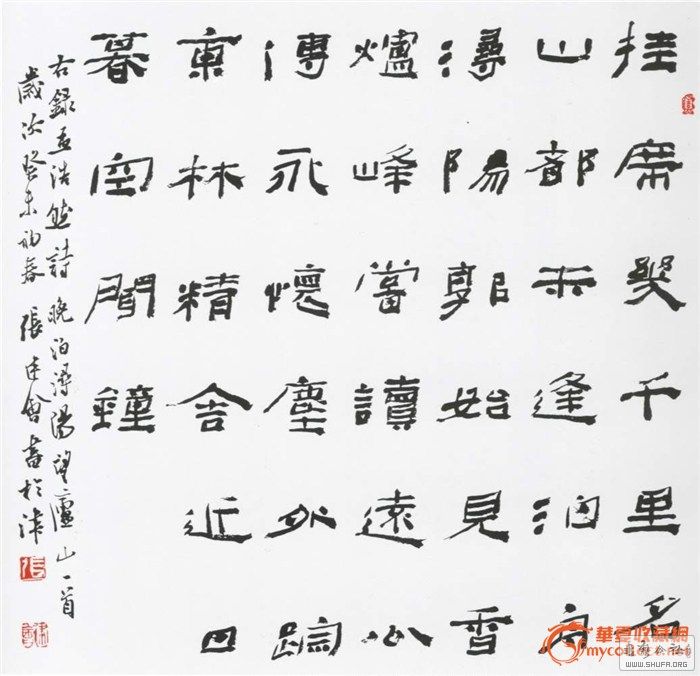 挂席幾千里名
山都未逢泊舟
潯陽郭始見香
爐峰嘗讀遠公
傳永懷塵外踪
東林精舍近日
暮空聞鐘
右錄孟浩然詩晚泊潯陽望廬山一首
歲次癸未初春張建會書於津
張
華夏收藏網
WWW.SHUFA.ORG